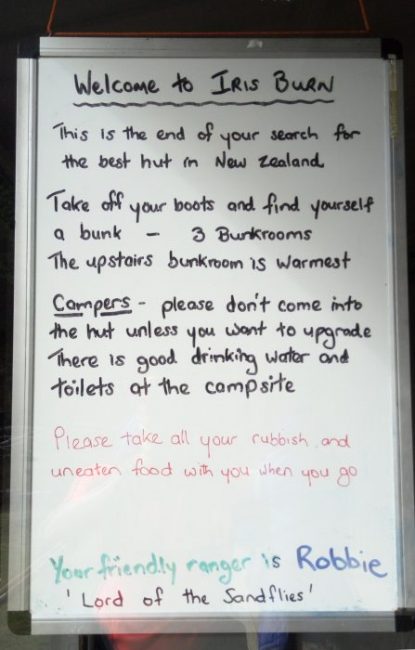 Welcome to IRIS BURN
This is the end of your search for
the best hut in New Zealand
Take off your boots and find yourself
a bunk – 3 Bunkrooms
The upstairs bunkroom is warmest
Campers - please don't come into
the hut unless you want to upgrade
There is good drinking water and
toilets at the campsite
Please take all your rubbish and
uneaten food with you when you go
Your friendly ranger is Robbie
'Lord of the Sandflies'